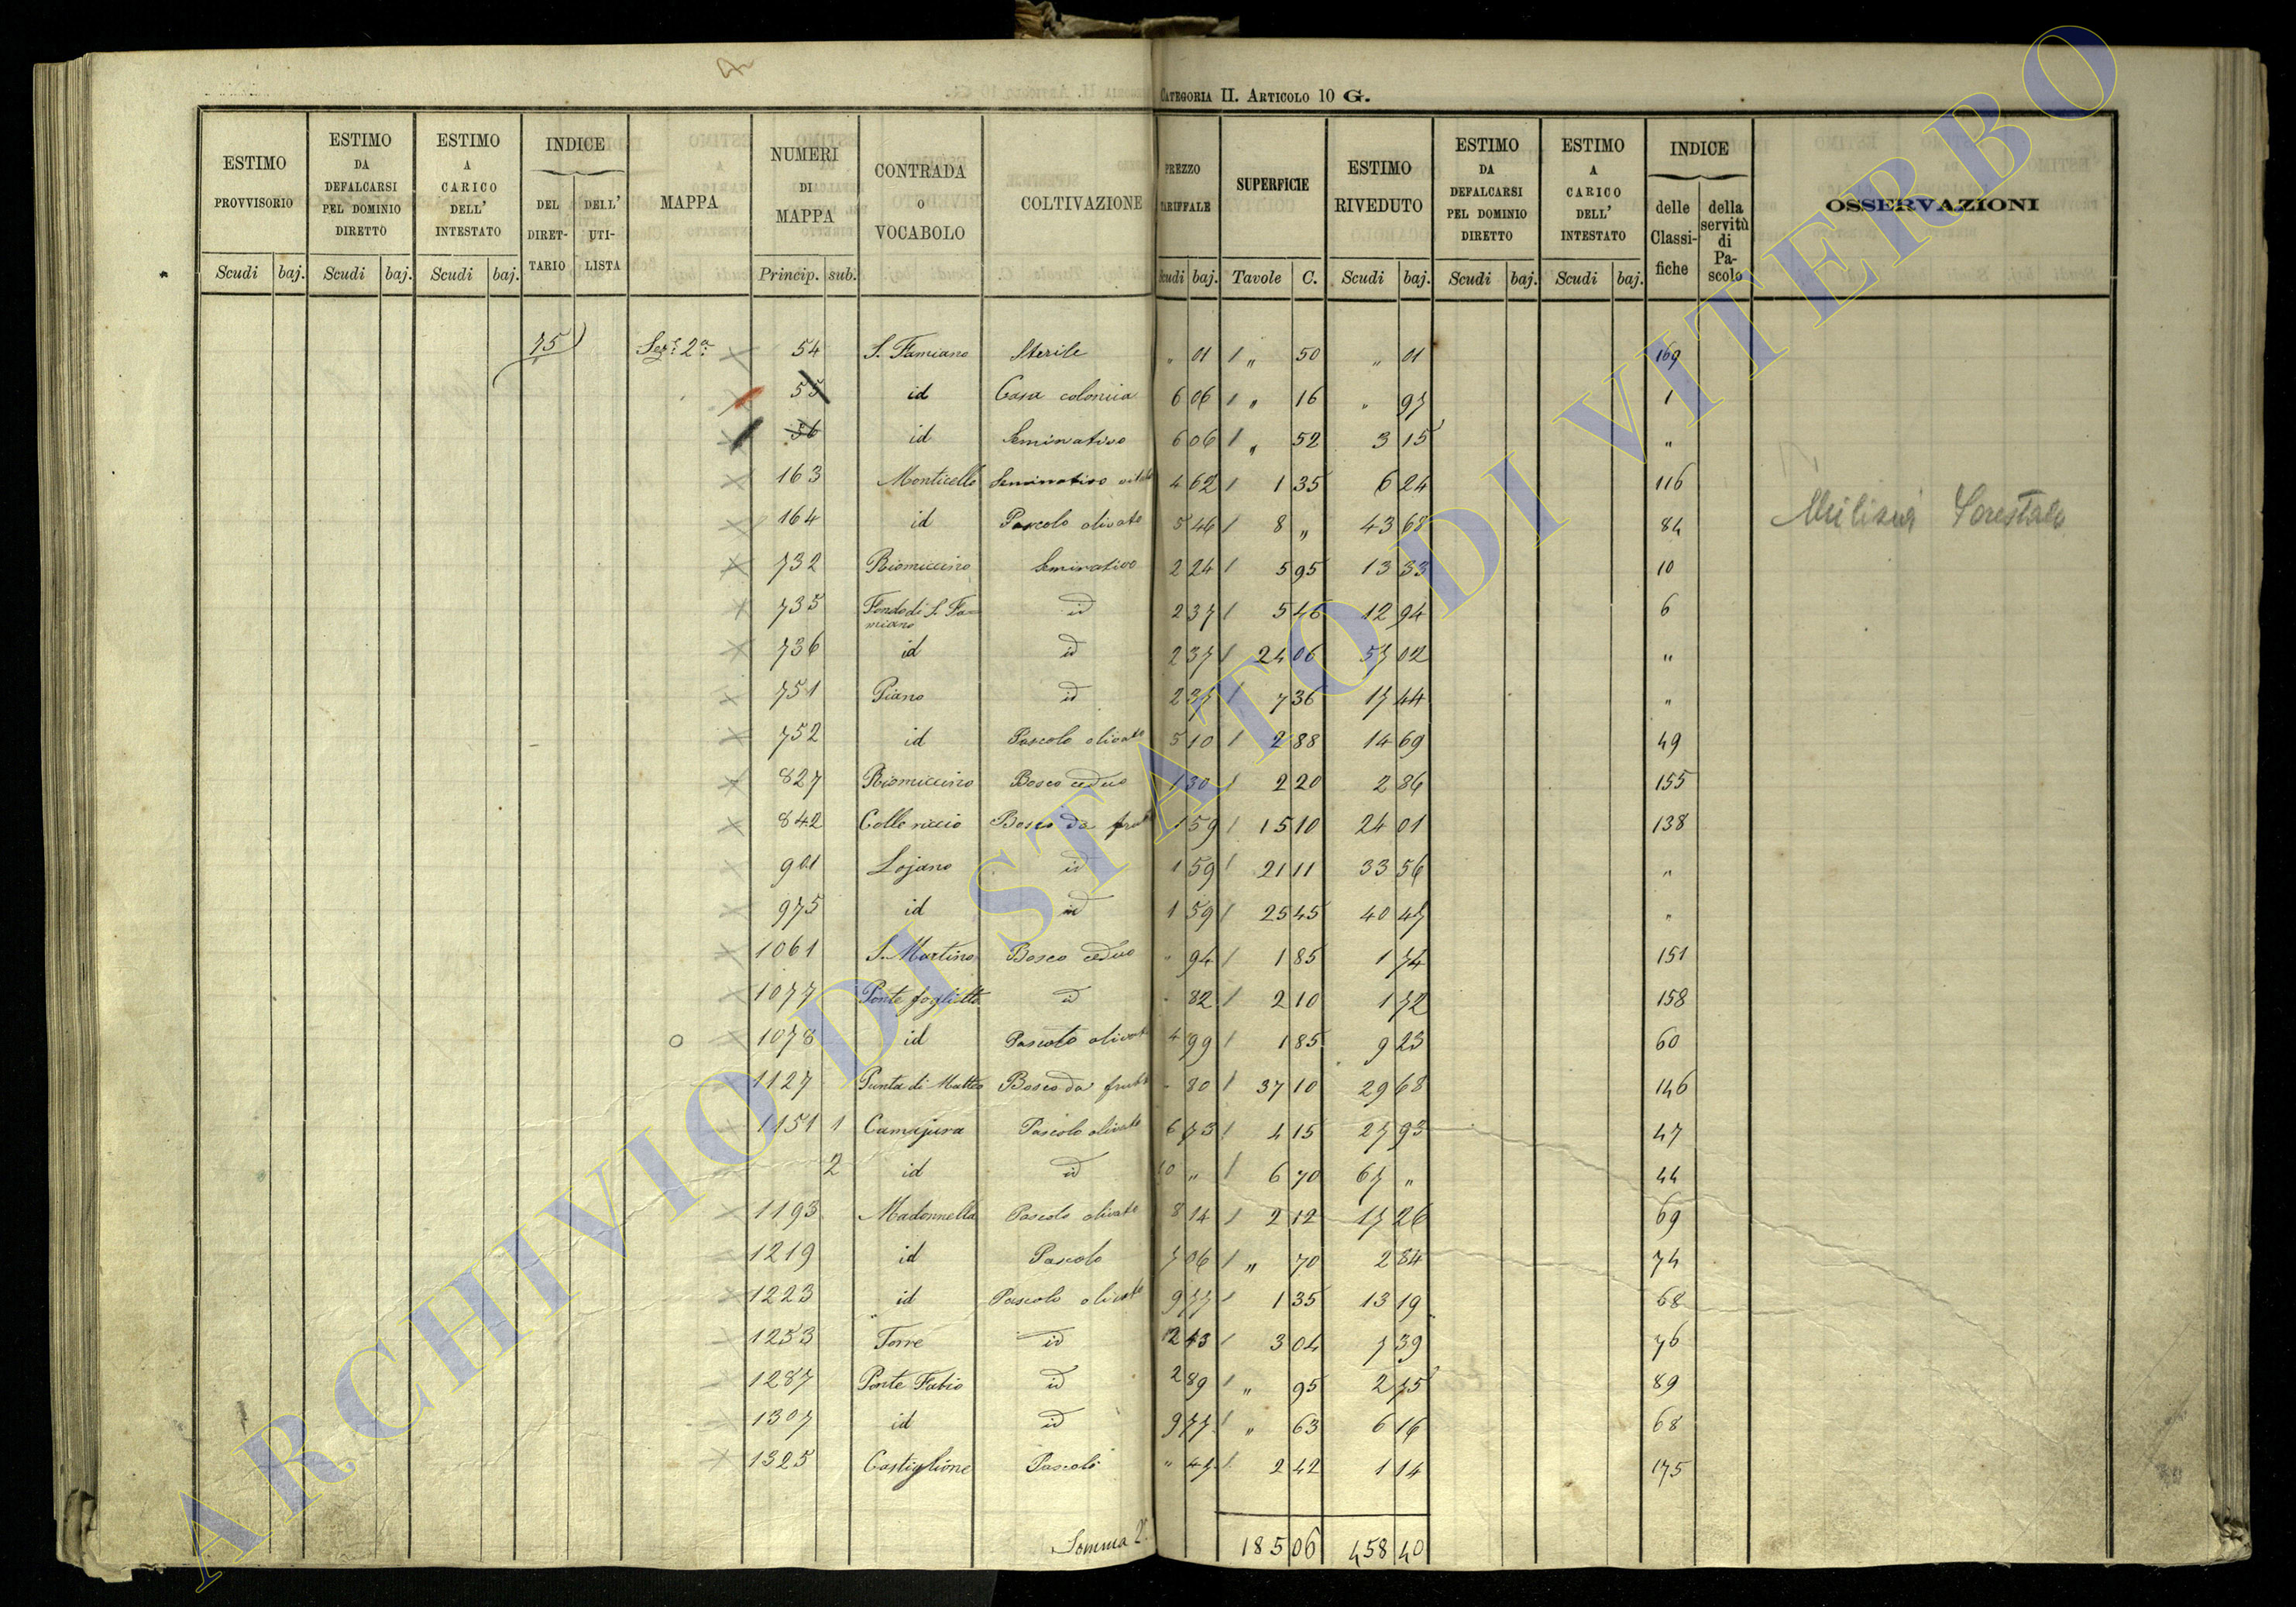 Categoria II. Articolo 10 G.
ESTIMO PROVVISORIO | ESTIMO DA DEFALCARSI PEL DOMINIO DIRETTO | ESTIMO A CARICO DELL' INTESTATO | INDICE DEL DIRET-TARIO | DELL' UTI-LISTA | MAPPA | NUMERI DI MAPPA | CONTRADA O VOCABOLO | COLTIVAZIONE | PREZZO TARIFFALE | SUPERFICIE | ESTIMO RIVEDUTO | ESTIMO DA DEFALCARSI PEL DOMINIO DIRETTO | ESTIMO A CARICO DELL' INTESTATO | INDICE delle Classi-fiche | della servitù di Pa-scolo | OSSERVAZIONI
Scudi | baj. | Scudi | baj. | Scudi | baj. | Princip. | sub. | Scudi | baj. | Tavole | C. | Scudi | baj. | Scudi | baj. | Scudi | baj.
75 | Sez.e 2a | 54 | S. Famiano | Sterile | " | 01 | " | 50 | " | 01 | 169
55 | id | Casa colonica | 6 | 06 | " | 16 | " | 97 | 1
56 | id | Seminativo | 6 | 06 | " | 52 | 3 | 15 | "
163 | Monticello | Seminativo vitato | 4 | 62 | 1 | 35 | 6 | 24 | 116
164 | id | Pascolo olivato | 5 | 46 | 8 | " | 43 | 68 | 84 | Milizia Forestale
732 | Riomiccino | Seminativo | 2 | 24 | 5 | 95 | 13 | 33 | 10
735 | Fondo di S. Famiano | id | 2 | 37 | 5 | 46 | 12 | 94 | 6
736 | id | id | 2 | 37 | 24 | 06 | 57 | 02 | "
751 | Piano | id | 2 | 37 | 7 | 36 | 17 | 44 | "
752 | id | Pascolo olivato | 5 | 10 | 2 | 88 | 14 | 69 | 49
827 | Riomiccino | Bosco ceduo | 1 | 30 | 2 | 20 | 2 | 86 | 155
842 | Colle riccio | Bosco da frutto | 1 | 59 | 15 | 10 | 24 | 01 | 138
901 | Lojano | id | 1 | 59 | 21 | 11 | 33 | 56 | "
975 | id | id | 1 | 59 | 25 | 45 | 40 | 47 | "
1061 | S. Martino | Bosco ceduo | " | 94 | 1 | 85 | 1 | 74 | 151
1077 | Ponte foglietto | id | " | 82 | 2 | 10 | 1 | 72 | 158
1078 | id | Pascolo olivato | 4 | 99 | 1 | 85 | 9 | 23 | 60
1127 | Punta di Matteo | Bosco da frutto | " | 80 | 37 | 10 | 29 | 68 | 146
1151 | 1 | Camajura | Pascolo olivato | 6 | 73 | 4 | 15 | 27 | 93 | 47
2 | id | id | 10 | " | 6 | 70 | 67 | " | 44
1193 | Madonnella | Pascolo olivato | 8 | 14 | 2 | 12 | 17 | 26 | 69
1219 | id | Pascolo | 06 | " | 70 | 2 | 84 | 74
1223 | id | Pascolo olivato | 9 | 77 | 1 | 35 | 13 | 19 | 68
1253 | Torre | id | 2 | 43 | 3 | 04 | 7 | 39 | 76
1287 | Ponte Fabio | id | 2 | 89 | " | 95 | 2 | 75 | 89
1307 | id | id | 9 | 77 | " | 63 | 6 | 16 | 68
1325 | Castiglione | Pascolo | " | 47 | 2 | 42 | 1 | 14 | 175
Somma 2a | 185 | 06 | 458 | 40
ARCHIVIO DI STATO DI VITERBO